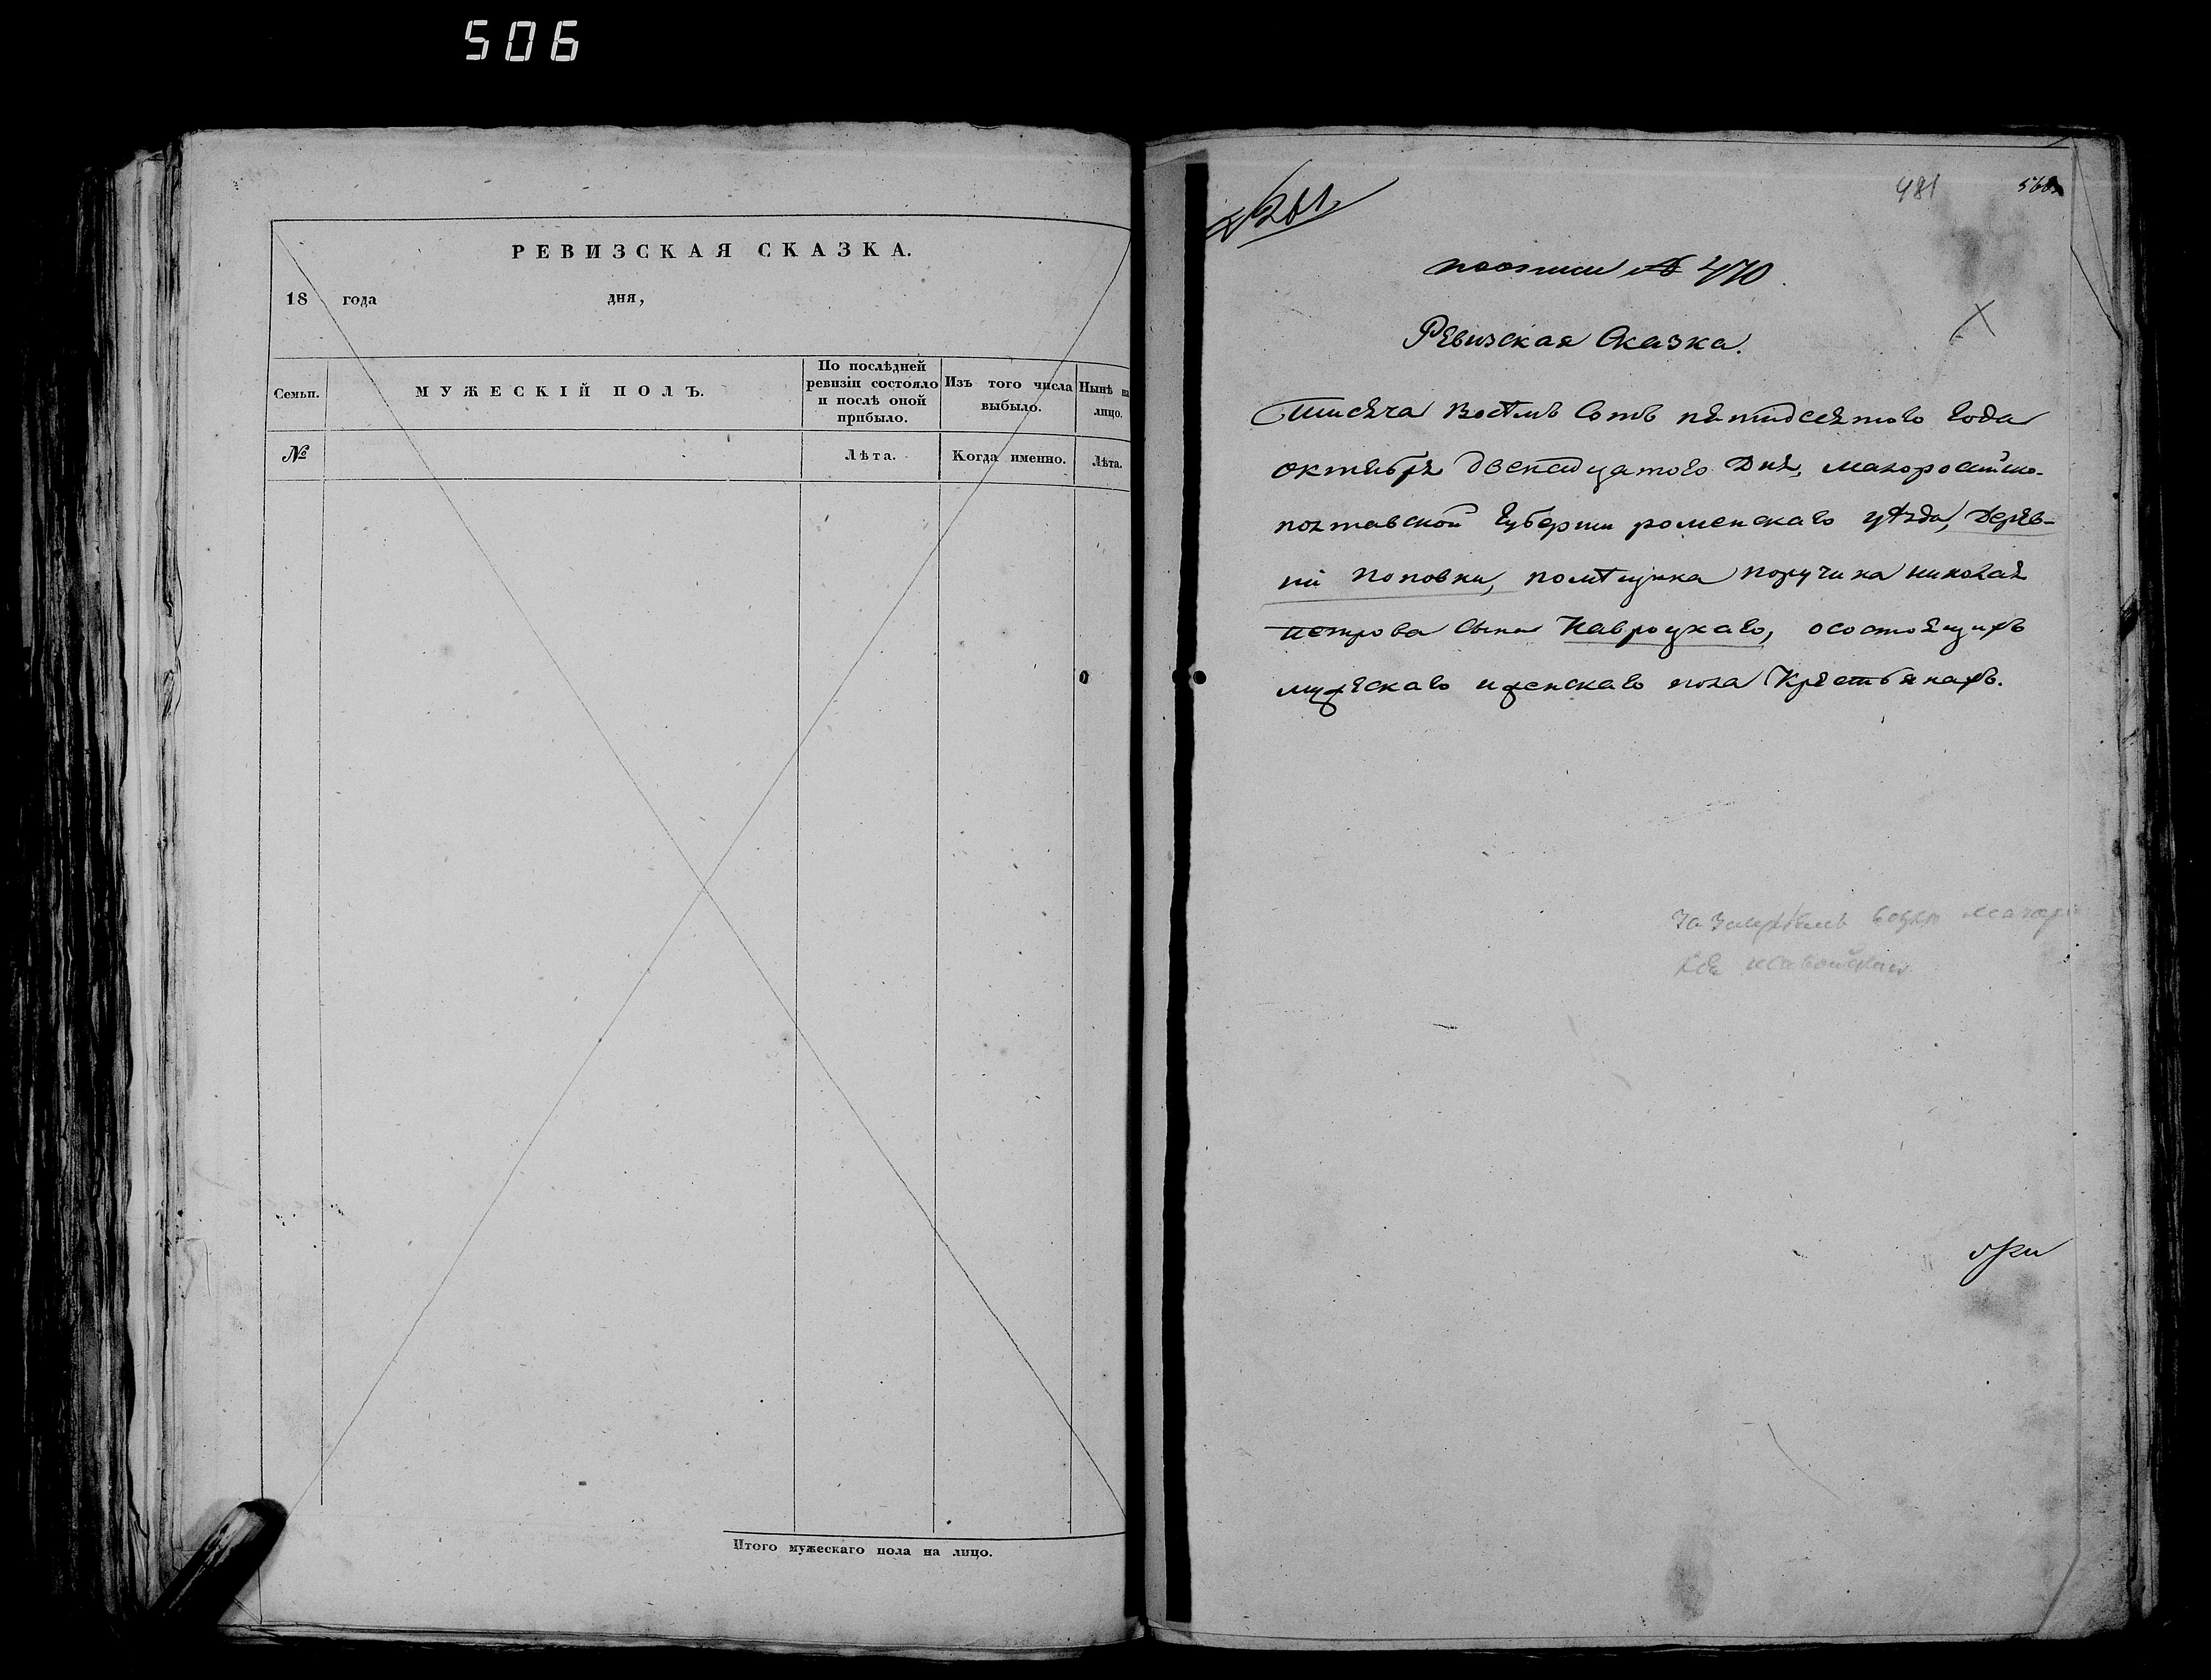 506
РЕВИЗСКАЯ СКАЗКА.
18 года дня,
Семьи.
МУЖЕСКІЙ ПОЛЪ.
По послѣдней ревизіи состояло и послѣ оной прибыло.
Изъ того числа выбыло.
Нынѣ на лицо.
№
Лѣта.
Когда именно.
Лѣта.
Итого мужескаго пола на лицо.
481
№ 261.
поописи № 470.
Ревизская Сказка.
Тисяча Восѣмь Сотъ пятидесятого Года
октября двенадцатого Дня, малоросійско-
полтавской Губерніи роменскаго уѣзда, Дерев-
ни Поповки, помѣщика Поручика николая
петрова Сына Навроцкаго, осостоящихъ
мужескаго иженскаго пола Крестьянахъ.